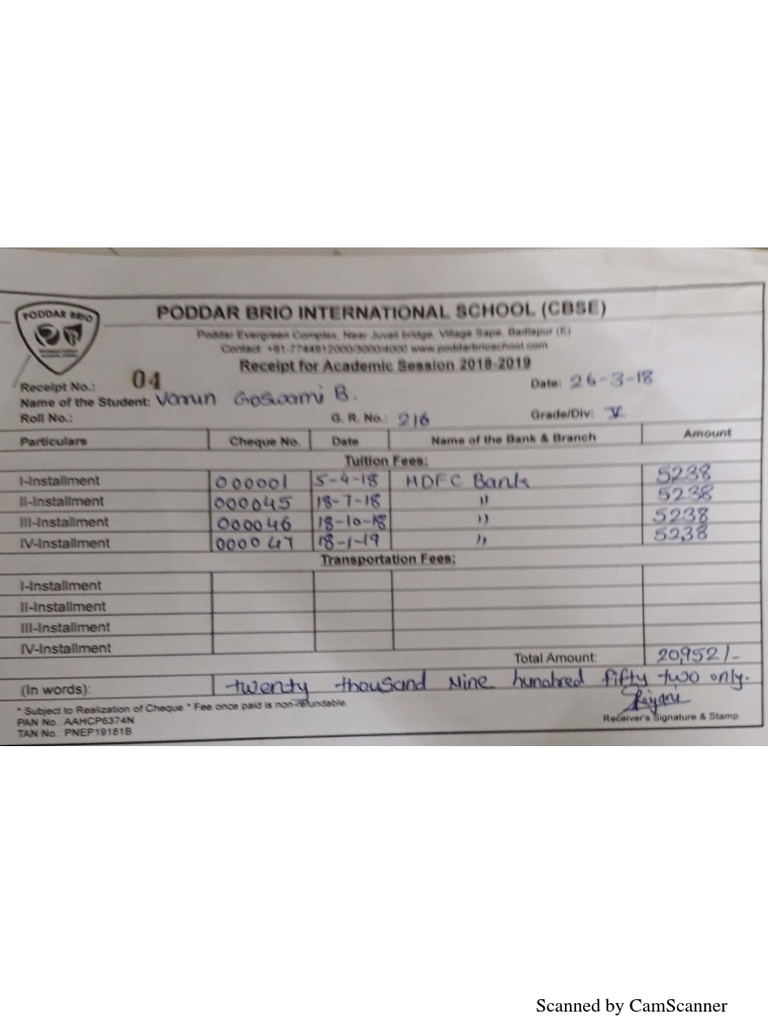 PODDAR BRIO
INTERNATIONAL
PODDAR BRIO INTERNATIONAL SCHOOL (CBSE)
Poddar Evergreen Complex, Near Juveli bridge, Village Sape, Badlapur (E)
Contact: +91-7744812000/3000/4000 www.poddarbrioschool.com
Receipt for Academic Session 2018-2019
Receipt No.: 04 Date: 26-3-18
Name of the Student: Varun Goswami B.
Roll No.: G. R. No.: 216 Grade/Div: V
Particulars Cheque No. Date Name of the Bank & Branch Amount
Tuition Fees:
I-Installment 000001 5-4-18 HDFC Bank 5238
II-Installment 000045 18-7-18 " 5238
III-Installment 000046 18-10-18 " 5238
IV-Installment 000047 18-1-19 " 5238
Transportation Fees:
I-Installment
II-Installment
III-Installment
IV-Installment
Total Amount: 20,952/-
(In words): twenty thousand Nine hundred fifty two only.
* Subject to Realization of Cheque * Fee once paid is non-refundable.
PAN No.: AAHCP6374N
TAN No.: PNEP19181B
Receiver's Signature & Stamp
Scanned by CamScanner